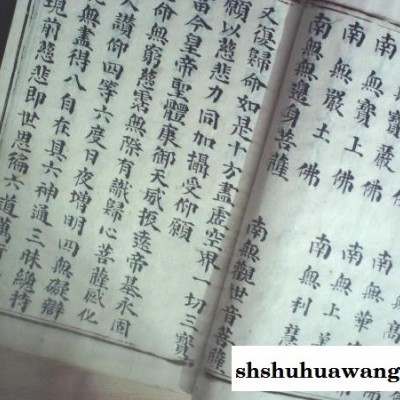 南無寶嚴佛
南無寶上佛
南無嚴土佛
南無無邊身菩薩
南無觀世音菩薩
又復歸命如是十方盡虛空界一切三寶
願以慈悲力同加攝受仰願
當今皇帝聖體康御天威振遠帝基永固
命無窮慈霑無際有識歸心菩薩感化
人讚仰四等六度日夜增明四無礙辯
無盡得八自在具六神通三昧總持
現前慈悲即世恩徧六道萬
shshuhuawang